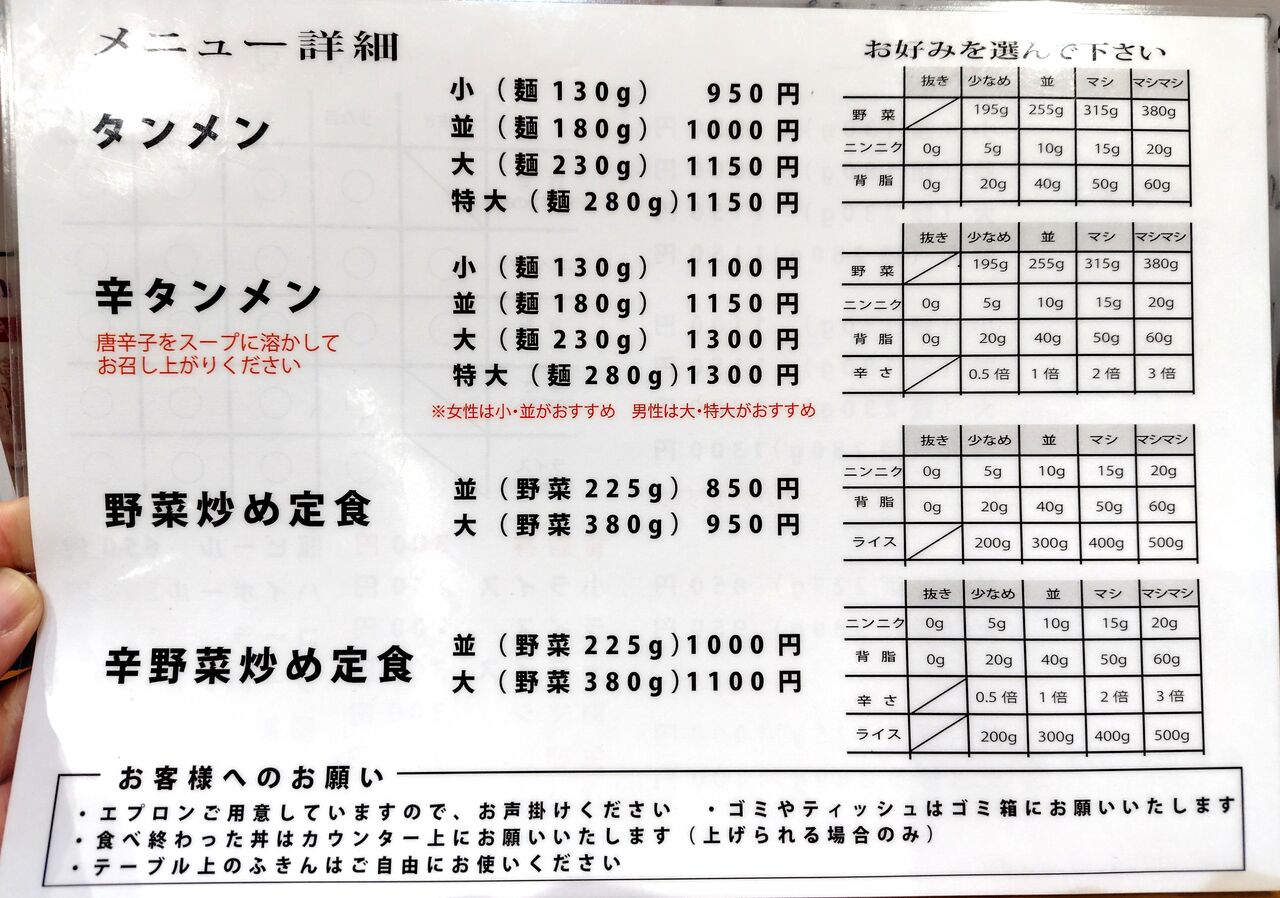 メニュー詳細
お好みを選んで下さい
タンメン
小（麺130g） 950円
並（麺180g） 1000円
大（麺230g） 1150円
特大（麺280g）1150円
抜き 少なめ 並 マシ マシマシ
野菜 195g 255g 315g 380g
ニンニク 0g 5g 10g 15g 20g
背脂 0g 20g 40g 50g 60g
辛タンメン
唐辛子をスープに溶かして
お召し上がりください
小（麺130g） 1100円
並（麺180g） 1150円
大（麺230g） 1300円
特大（麺280g）1300円
※女性は小・並がおすすめ 男性は大・特大がおすすめ
抜き 少なめ 並 マシ マシマシ
野菜 195g 255g 315g 380g
ニンニク 0g 5g 10g 15g 20g
背脂 0g 20g 40g 50g 60g
辛さ 0.5倍 1倍 2倍 3倍
野菜炒め定食
並（野菜225g） 850円
大（野菜380g） 950円
抜き 少なめ 並 マシ マシマシ
ニンニク 0g 5g 10g 15g 20g
背脂 0g 20g 40g 50g 60g
ライス 200g 300g 400g 500g
辛野菜炒め定食
並（野菜225g）1000円
大（野菜380g）1100円
抜き 少なめ 並 マシ マシマシ
ニンニク 0g 5g 10g 15g 20g
背脂 0g 20g 40g 50g 60g
辛さ 0.5倍 1倍 2倍 3倍
ライス 200g 300g 400g 500g
お客様へのお願い
・エプロンご用意していますので、お声掛けください ・ゴミやティッシュはゴミ箱にお願いいたします
・食べ終わった丼はカウンター上にお願いいたします（上げられる場合のみ）
・テーブル上のふきんはご自由にお使いください